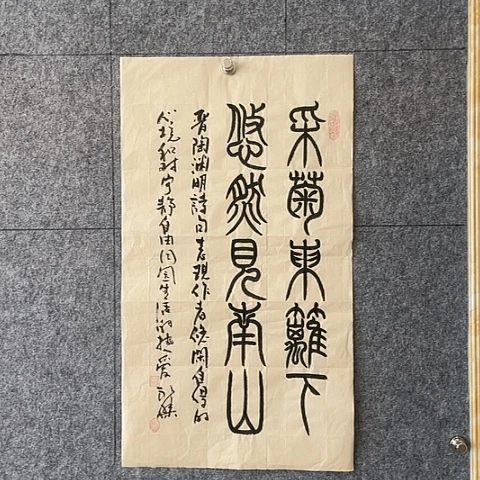 采菊東籬下
悠然見南山
晉陶渊明詩句表現作者悠閑自得的
心境和对宁静自由田园生活的热爱